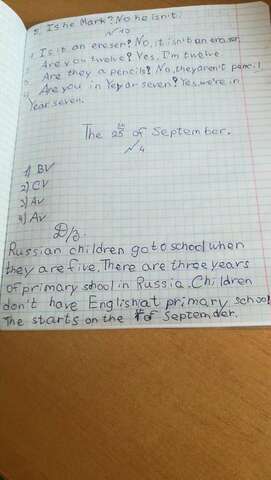 5. Is he Mark? No he isn't.
№10
1. Is it an eraser? No, it isn't an eraser
Are you twelve? Yes, I'm twelve
Are they a pencils? No, they aren't pencil
Are you in Year seven? Yes, we're in
Year seven.
The 25 of September.
№4
1) BV
2) CV
3) AV
4) AV
D/з.
Russian children go to school when
they are five. There are three years
of primary school in Russia. Children
don't have English at primary school
The starts on the 1 of September.